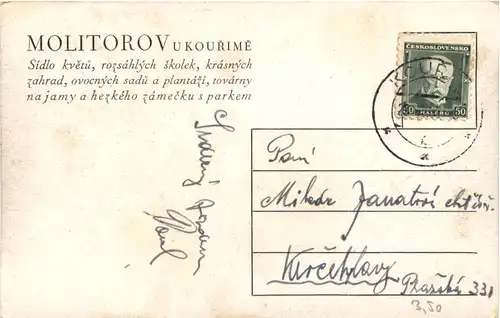 MOLITOROV U KOUŘIMĚ
Sídlo květů, rozsáhlých školek, krásných
zahrad, ovocných sadů a plantáží, továrny
na jamy a hezkého zámečku s parkem
ČESKOSLOVENSKO
50 50
HALÉŘŮ
Srdečný pozdrav
Paní
Pražská 331
3,50